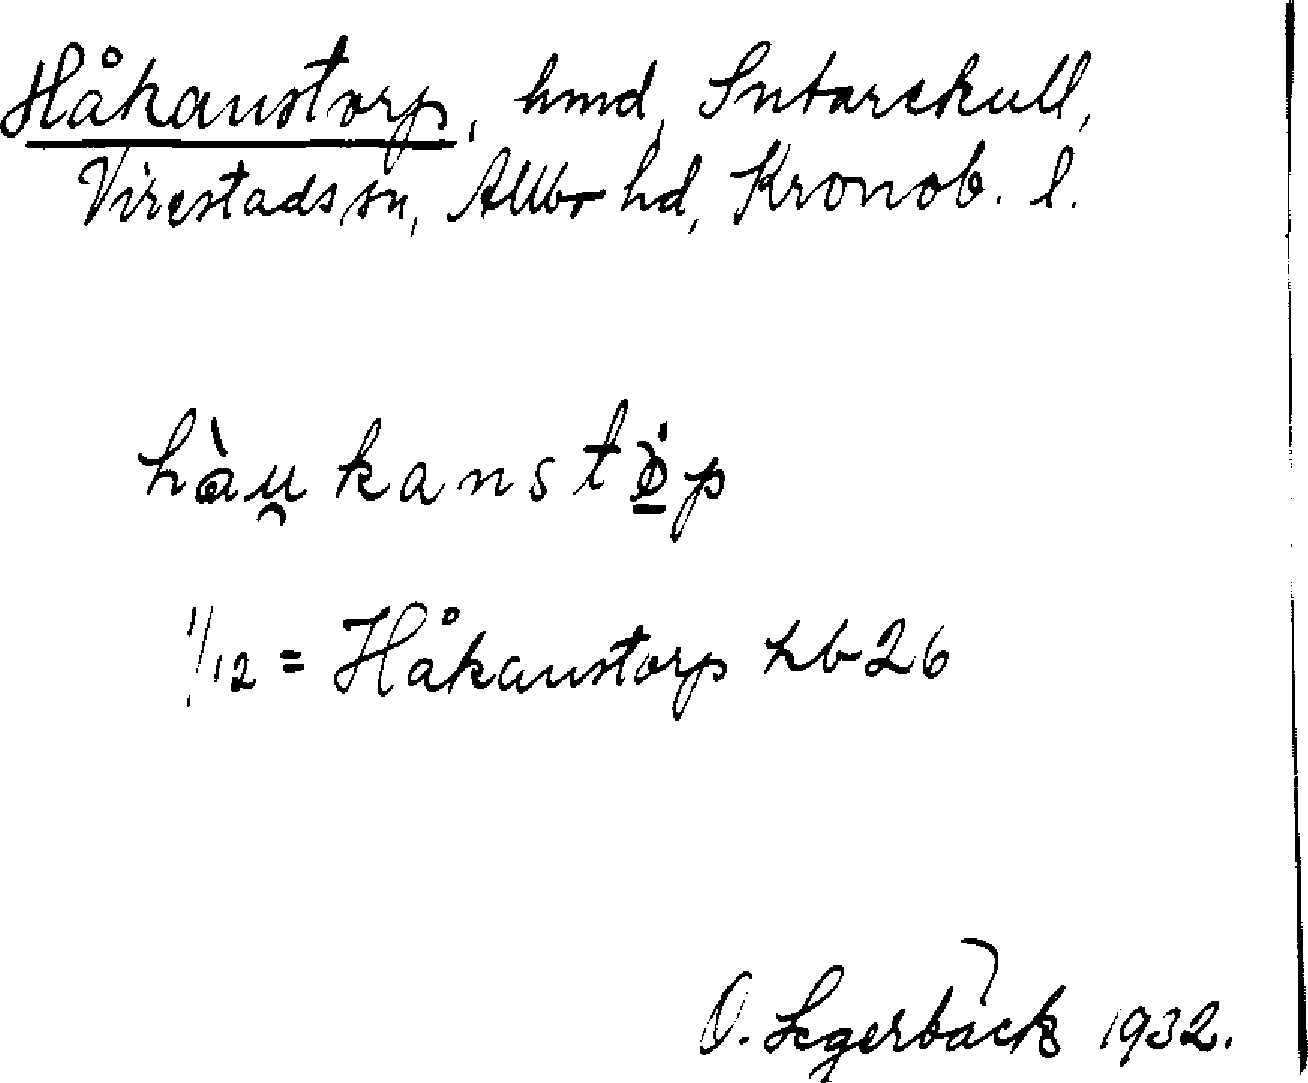 Håkanstorp, hmd, Sutareskull,
Virestads sn, Allbo hd, Kronob. l.
hàu̯kanstp
1/12 = Håkanstorp hb 26
O. Segerbäck 1932.